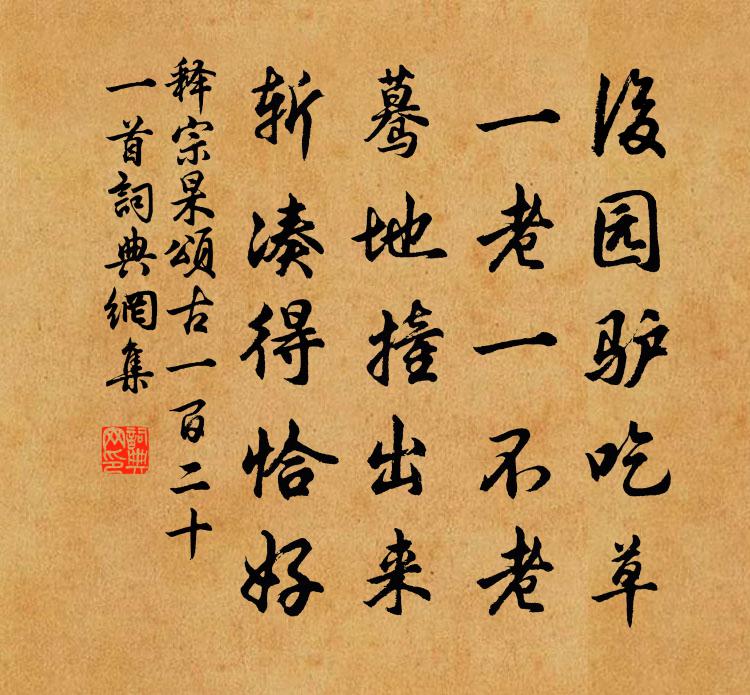 後园驴吃草
一老一不老
驀地撞出来
斩凑得恰好
释宗杲頌古一百二十
一首詞典網集
詞典网印